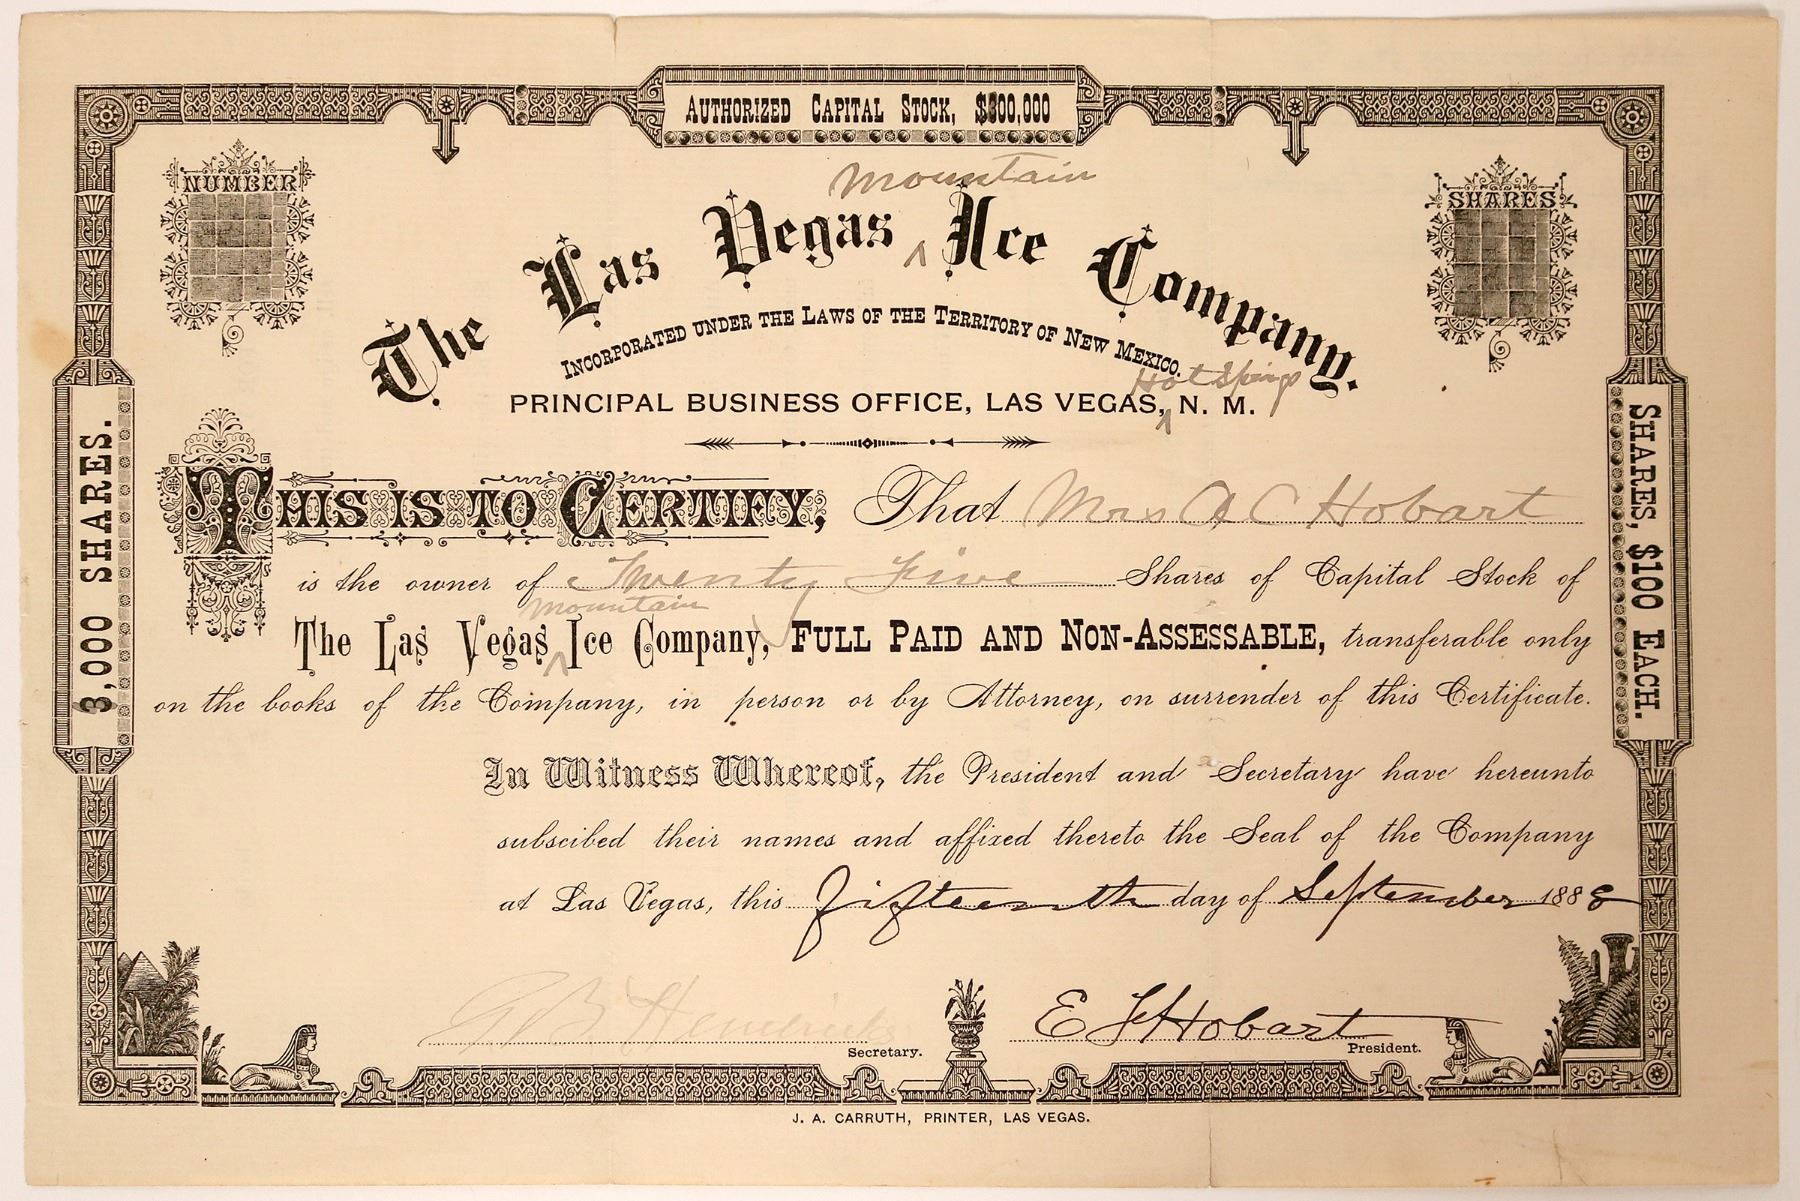 AUTHORIZED CAPITAL STOCK, $300,000
NUMBER
SHARES
Mountain
The Las Vegas ^ Ice Company.
INCORPORATED UNDER THE LAWS OF THE TERRITORY OF NEW MEXICO.
Hot Springs
PRINCIPAL BUSINESS OFFICE, LAS VEGAS, ^ N. M.
3,000 SHARES.
SHARES, $100 EACH.
THIS IS TO CERTIFY, That Mrs A C Hobart
is the owner of Twenty Five Shares of Capital Stock of
Mountain
The Las Vegas ^ Ice Company, FULL PAID AND NON-ASSESSABLE, transferable only
on the books of the Company, in person or by Attorney, on surrender of this Certificate.
In Witness Whereof, the President and Secretary have hereunto
subscibed their names and affixed thereto the Seal of the Company
at Las Vegas, this Fifteenth day of September 1888
G B Hendricks
E F Hobart
Secretary.
President.
J. A. CARRUTH, PRINTER, LAS VEGAS.